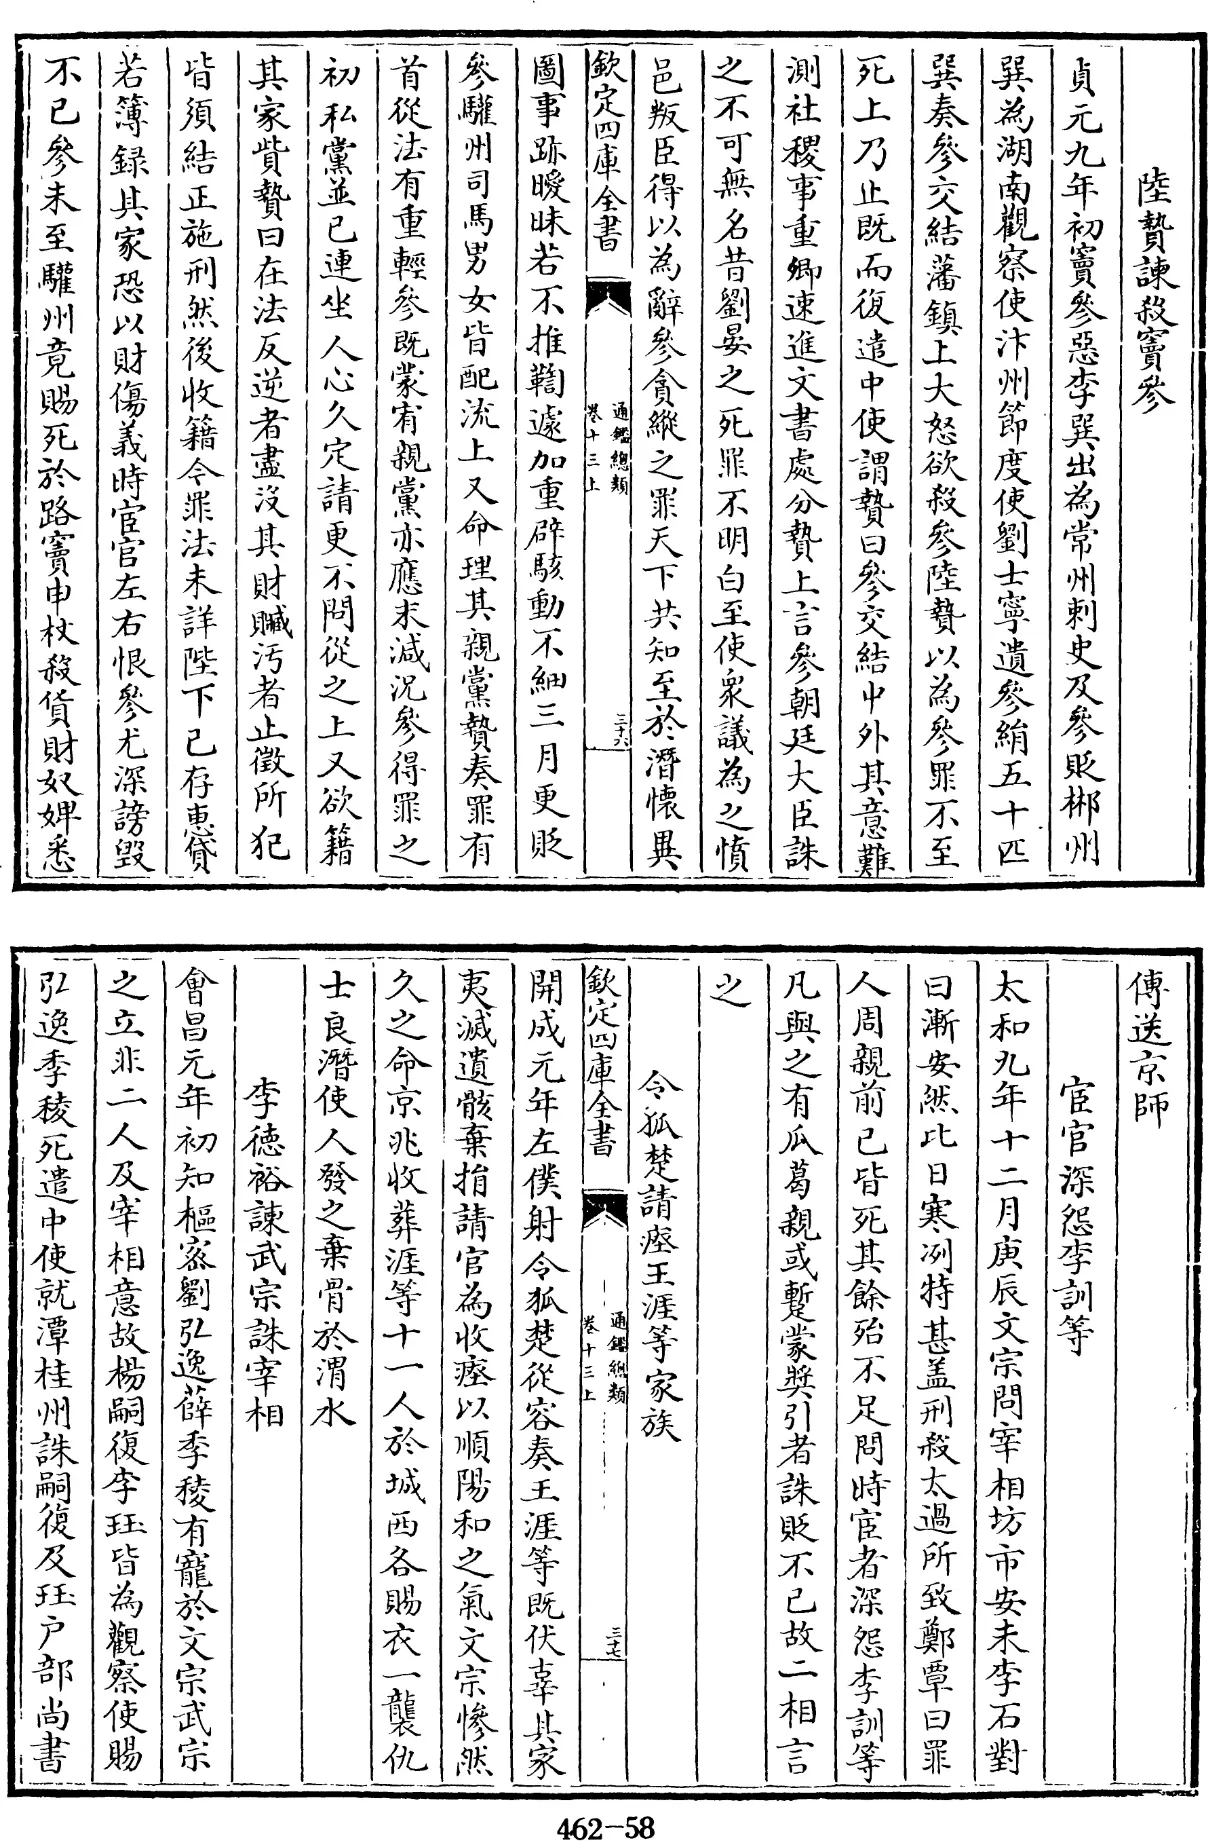 陸贄諫殺竇參
貞元九年初竇參惡李巽出為常州刺史及參貶郴州
巽為湖南觀察使汴州節度使劉士寧遺參絹五十匹
巽奏參交結藩鎮上大怒欲殺參陸贄以為參罪不至
死上乃止既而復遣中使謂贄曰參交結中外其意難
測社稷事重卿速進文書處分贄上言參朝廷大臣誅
之不可無名昔劉晏之死罪不明白至使衆議為之憤
邑叛臣得以為辭參貪縱之罪天下共知至於潛懷異
欽定四庫全書
通鑑總類
卷十三上
三十六
圖事跡曖昧若不推鞫遽加重辟駭動不細三月更貶
參驩州司馬男女皆配流上又命理其親黨贄奏罪有
首從法有重輕參既蒙宥親黨亦應末減况參得罪之
初私黨並已連坐人心久定請更不問從之上又欲籍
其家貲贄曰在法反逆者盡沒其財贓污者止徵所犯
皆須結正施刑然後收籍今罪法未詳陛下已存惠貸
若簿録其家恐以財傷義時宦官左右恨參尤深謗毀
不已參未至驩州竟賜死於路竇申杖殺貨財奴婢悉
傳送京師
宦官深怨李訓等
太和九年十二月庚辰文宗問宰相坊市安未李石對
曰漸安然比日寒冽特甚盖刑殺太過所致鄭覃曰罪
人周親前已皆死其餘殆不足問時宦者深怨李訓等
凡與之有瓜葛親或蹔蒙奬引者誅貶不已故二相言
之
令狐楚請瘞王涯等家族
欽定四庫全書
通鑑總類
卷十三上
三十七
開成元年左僕射令狐楚從容奏王涯等既伏辜其家
夷滅遺骸棄捐請官為收瘞以順陽和之氣文宗慘然
久之命京兆收葬涯等十一人於城西各賜衣一襲仇
士良潛使人發之棄骨於渭水
李德裕諫武宗誅宰相
會昌元年初知樞宻劉弘逸薛季稜有寵於文宗武宗
之立非二人及宰相意故楊嗣復李珏皆為觀察使賜
弘逸季稜死遣中使就潭桂州誅嗣復及珏户部尚書
462-58